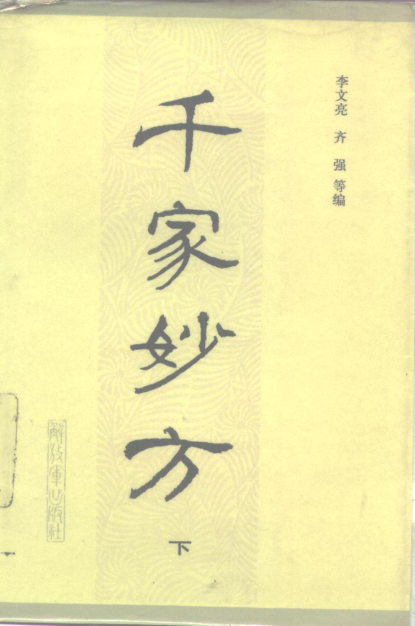 李文亮 齐强 等编
千家妙方
下
解放军出版社